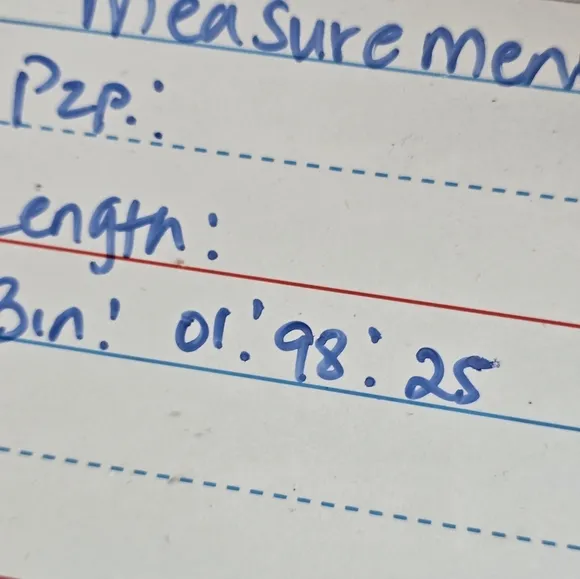 Measuremen
P2P.:
Length:
Bin: 01:98:25